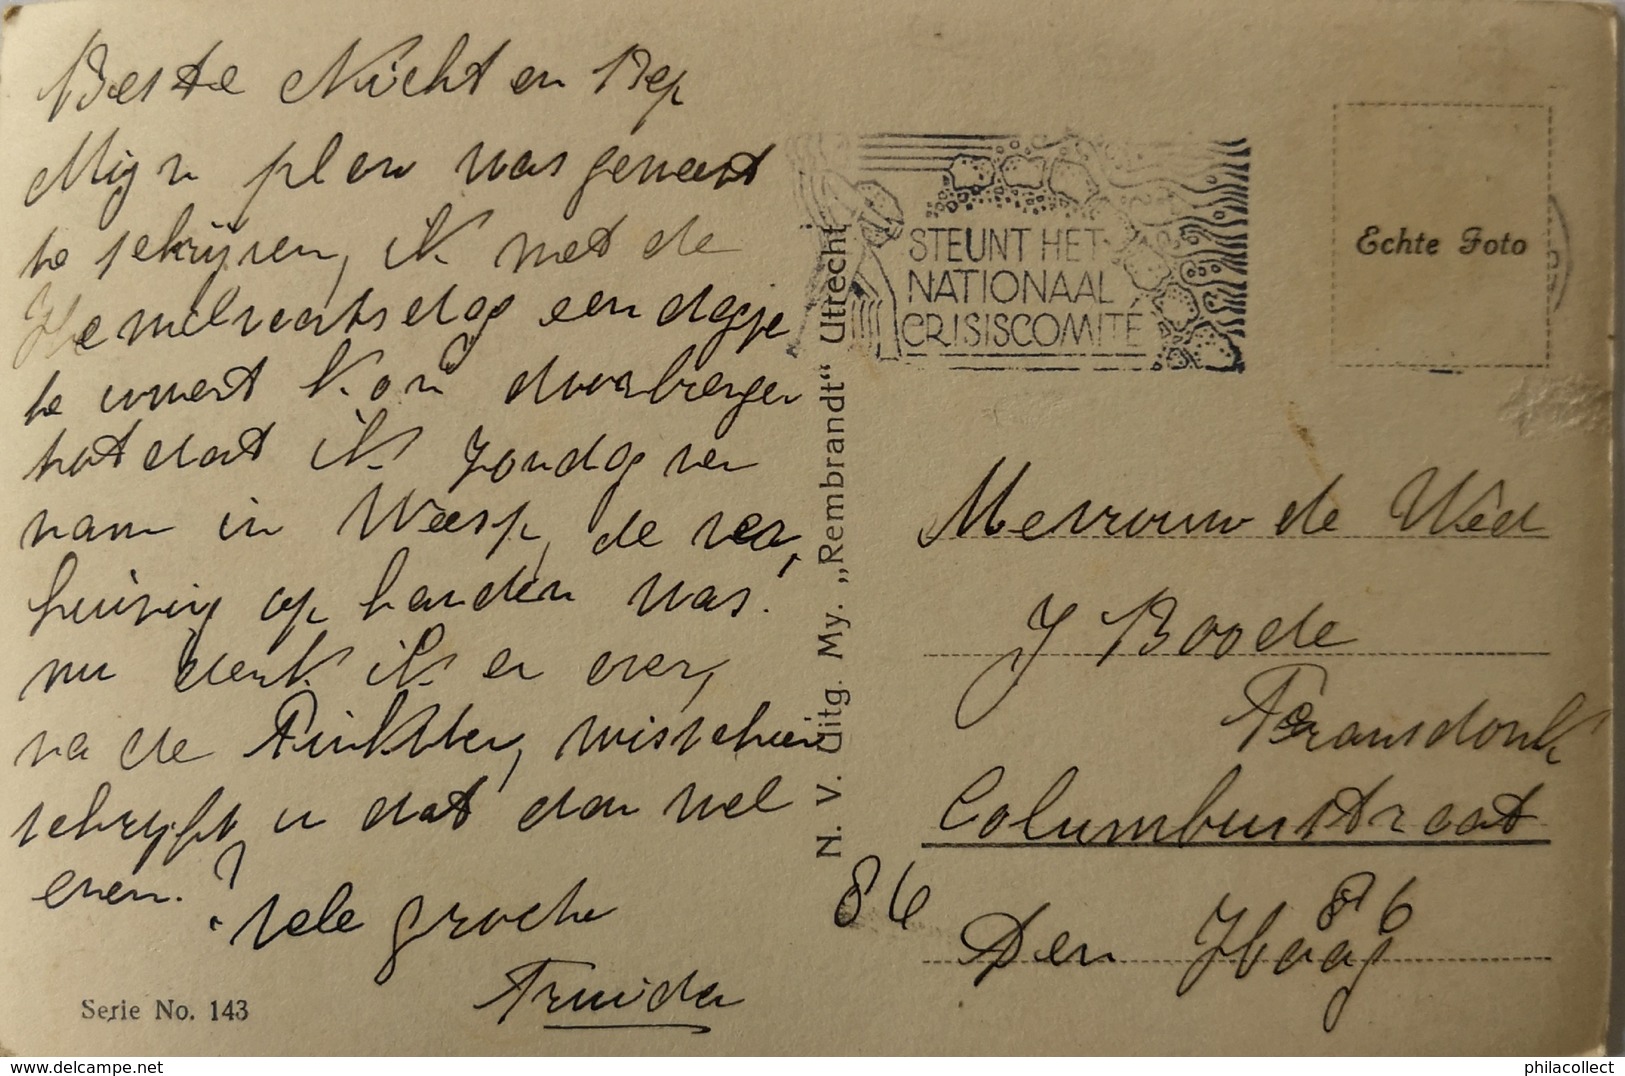 Beste Nicht en Bep
Mijn plan was geweest
te schrijven, ik met de
Hemelvaartsdag een dagje
te komt doorbrengen
totdat ik Zondag ver
nam in Weesp, de ver,
huizing op handen was.
nu denk ik er over,
na de Pinkster, misschien
schrijft u dat dan wel
even.?
Vele groete
Truida
Serie No. 143
N. V. Uitg. My. „Rembrandt“ Utrecht
STEUNT HET
NATIONAAL
CRISISCOMITÉ
Echte Foto
Mevrouw de Wed
J Boode
Fransdonk
Columbusstraat
86
86
Den Haag
philacollect.net
philacollect